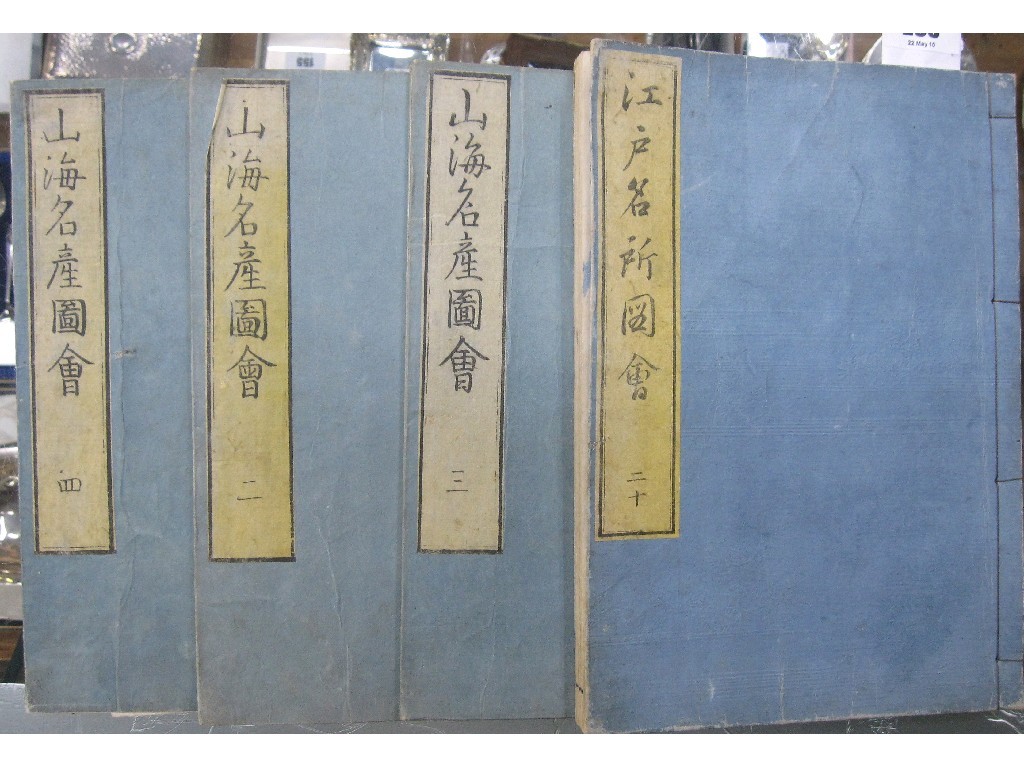 山海名產圖會
四
山海名產圖會
二
山海名產圖會
三
江戸名所図會
二十
155
22 May 10